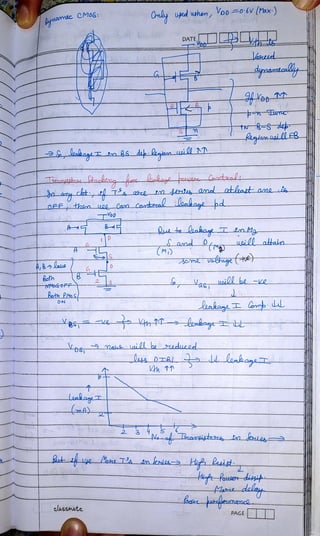 Dynamic CMOS:
Only used when, VDD = 0.6V (Max.)
DATE
Vth is
Varied
dynamically
G
B
If VDD ↑↑
p-n June
in B-S dep.
Region will FB
→ So, leakage I in BS dep Region will ↑↑
Transistor Stacking for leakage power Control:
In any ckt, if T's are in series and atleast one is
OFF, then we can control leakage pd
VDD
Due to leakage I in M2
S (M1) and D (M2) will attain
some voltage (+ve)
A, B → low
Both
NMOS OFF
Both PMOS
ON
A
B
So, VGS1 will be -ve
↓
leakage I Comp ↓↓
VBS1 = -ve } Vth ↑↑ → leakage I ↓↓
VDS1 → now will be reduced
less DIBL } → ↓↓ leakage I
Vth ↑↑
↑
Leakage I
(mA)
2 3 4 5 6
No. of Transistors in series →
But if use More T's in series → High Resist.
High Power dissip.
More delay
Poor performance
classmate
PAGE